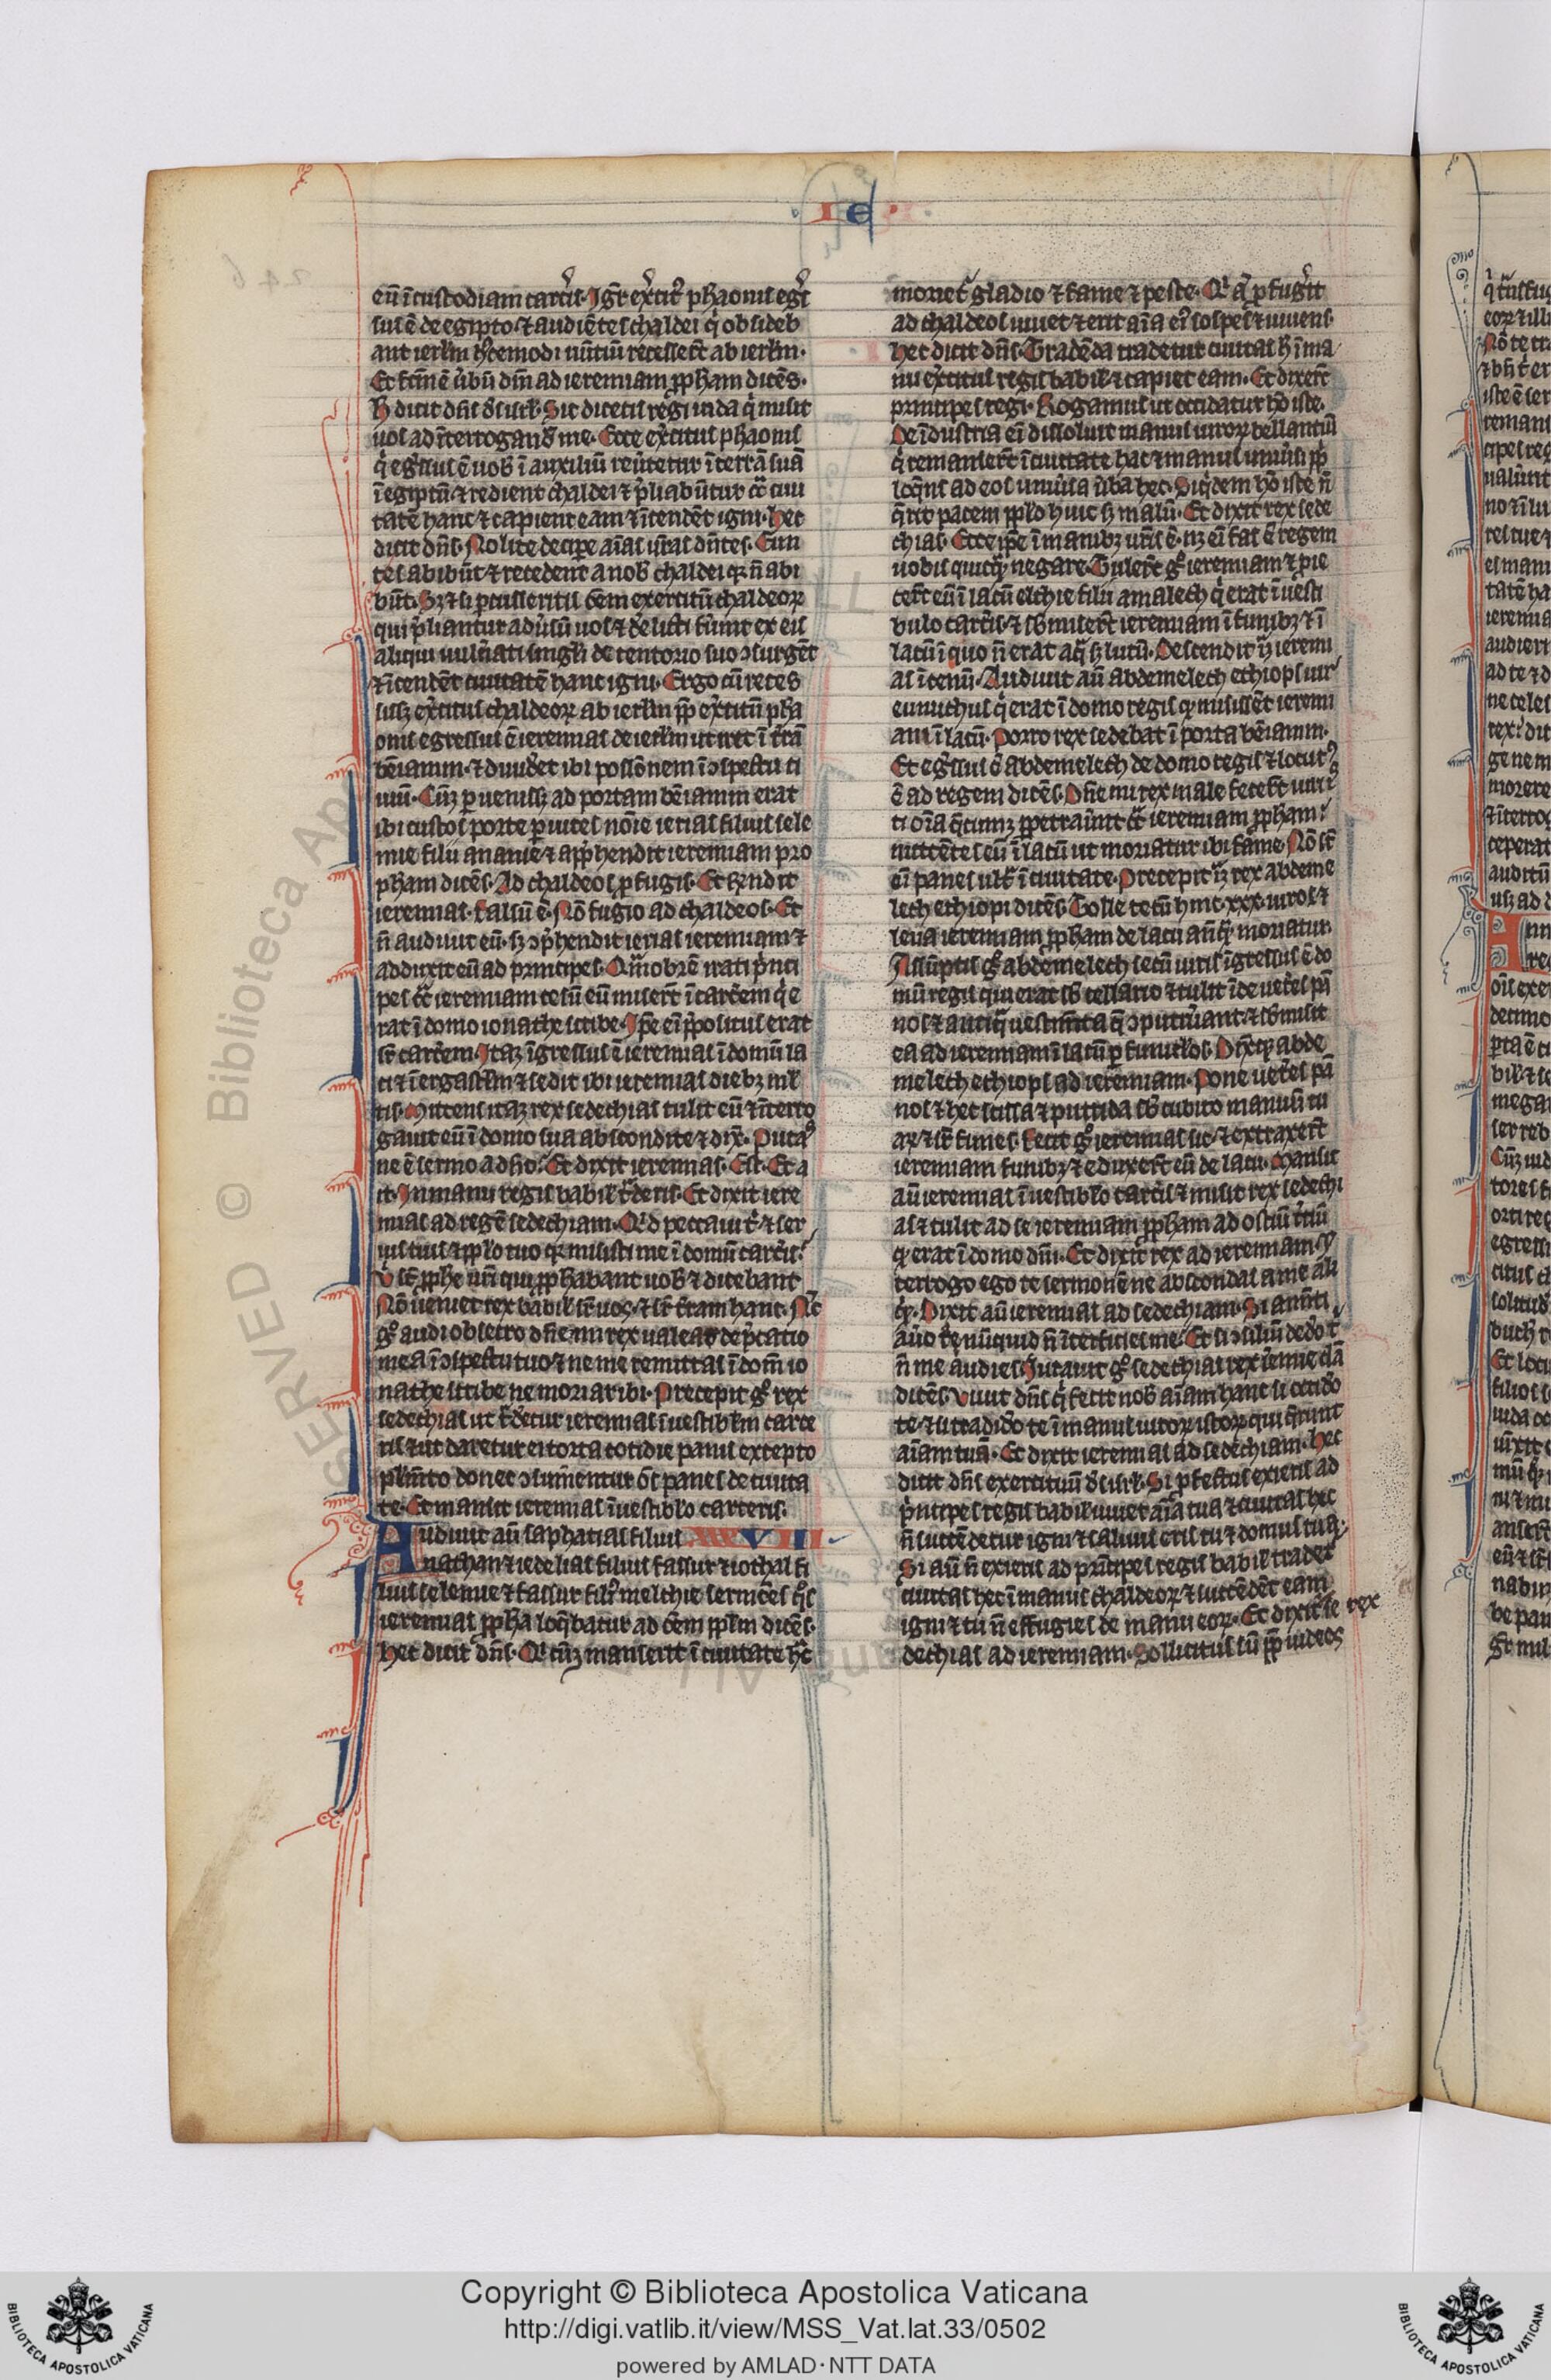 .I e.
eū ī custodiam carc̄is. Igr̄ ex̄citꝰ phaonis eḡs
sus ē de egipto ⁊ audiētes chaldei q̇ obsideb
ant ierlm̄ hͦcemodi nūtiū recesser̄t ab ierlm̄.
Et fcm̄ ē ūbū dn̄i ad ieremiam ꝓpham dicēs.
H dicit dn̄s ds̄ isrl̄. Sic dicetis regi iuda q̇ misit
uos ad īterrogandū me. Ecce ex̄citus phaonis
q̇ egr̄ssus ē uob̄ ī auxiliū reūtetur ī terrā suā
ī egiptū ⁊ redient chaldei ⁊ p̄liabūtur cͣ ciui
tatē hanc ⁊ capient eam ⁊ īcendēt igni. Hec
dicit dn̄s. Nolite decipe aīas ur̄as dn̄tes. Eun
tes abibūt ⁊ recedent a nob̄ chaldei qꝛ n̄ abi
būt. Sꝫ ⁊ si ꝑcusseritis om̄em exercitū chaldeoꝝ
qui p̄liantur adūsū uos ⁊ delicti fūint ex eis
aliqui uuln̄ati singl̄i de tentorio suo ↄsurgēt
⁊ īcendēt ciuitatē hanc igni. Ergo cū reces
sisꝫ ex̄citus chaldeoꝝ ab ierlm̄ ꝓp ex̄citū pha
onis egressus ē ieremias de ierlm̄ ut iret ī t̄rā
bēiamin. ⁊ diuidet ibi possōnem ī ↄspectu ci
uiū. Cūꝫ ꝑuenissꝫ ad portam bēiamin erat
ibi custos porte ꝑ uices nōie ierias filius sele
mie filii ananie ⁊ app̄hendit ieremiam pro
pham dicēs. Ad chaldeos ꝓfugis. Et rn̄dit
ieremias. falsū ē. Nō fugio ad chaldeos. Et
n̄ audiuit eū. sꝫ ↄp̄hendit ierias ieremiam ⁊
adduxit eū ad principes. Qm̄obrē irati p̄nci
pes cͣ ieremiam cesū eū miser̄t ī carc̄em q̇ e
rat ī domo ionathe scribe. Ip̄e ei p̄positus erat
sr̄ carc̄em. Itaꝫ īgressus ē ieremias ī domū la
ci ⁊ ī ergastlm̄ ⁊ sedit ibi ieremias diebꝫ ml̄
tis. Mittens itaꝫ rex sedechias tulit eū ⁊ īterro
gauit eū ī domo sua abscondite ⁊ dix̄. Putaꝰ
ne ē sermo a dn̄o. Et dixit ieremias. Est. Et a
it. In manu regis babil̄ t̄deris. Et dixit iere
mias ad regē sedechiam. Qͥd peccaui t̄ ⁊ ser
uis tuis ⁊ pplo tuo qꝛ misisti me ī domū carc̄is.
V̇ st̄ ꝓphe ur̄i qui ꝓphabant uob̄ ⁊ dicebant
Nō ueniet rex babil̄ sr̄ uos ⁊ sr̄ t̄ram hanc. Nc̄
gͦ audi obsecro dn̄e mi rex ualeat dep̄catio
mea ī ↄspectu tuo ⁊ ne me remittas ī dom̄ io
nathe scribe ne moriar ibi. Precepit gͦ rex
sedechias ut t̄detur ieremias ī uestiblm̄ carce
ris ⁊ ut daretur ei torta cotidie panis excepto
plm̄to donec ↄsum̄entur om̄s panes de ciuita
te. Et mansit ieremias ī uestiblo carceris.
Audiuit aū saphatias filius XXXVIII.
nathan ⁊ iedelias filius fassur ⁊ iothal fi
lius selemie ⁊ fassur filꝰ melchie sermōes qͦs
ieremias ꝓpha loq̄batur ad om̄em pplm̄ dicēs.
Hec dicit dn̄s. Qͥcūꝫ manserit ī ciuitate hͣc
morietͬ gladio ⁊ fame ⁊ peste. Qͥ aͣ ꝓfugit
ad chaldeos uiuet ⁊ erit aīa eiꝰ sospes ⁊ uiuens.
Hec dicit dn̄s. Tradēda tradetur ciuitas h̄ ī ma
nu ex̄citus regis babil̄ ⁊ capiet eam. Et dixer̄t
principes regi. Rogamus ut occidatur hō iste.
De īdustria ei dissoluit manus uiroꝝ bellantiū
q̇ remanser̄t ī ciuitate hac ⁊ manus uniūsi ppl̄i
loq̄ns ad eos uniūsa ūba hec. Siq̇dem hō iste n̄
q̄rit pacem pplo huic sꝫ malū. Et dixit rex sede
chias. Ecce ip̄e ī manibꝫ ur̄is ē. nꝫ ei fas ē regem
uobis quicq̄ negare. Tuler̄t gͦ ieremiam ⁊ ꝓie
cer̄t eū ī lacū elchie filii amalech q̇ erat ī uesti
bulo carc̄is. ⁊ sb̄miser̄t ieremiam ī funibꝫ ⁊ ī
lacū ī quo n̄ erat aq̄ sꝫ lutū. Descendit ġ ieremi
as ī cenū. Audiuit aū abdemelech ethiops uir
eunuchus q̇ erat ī domo regis qꝫ misissēt ieremi
am ī lacū. Porro rex sedebat ī porta bēiamin.
Et egr̄ssus ē abdemelech de domo regis ⁊ locutꝰ
ē ad regem dicēs. Dn̄e mi rex male fecer̄t uiri
ti oīa q̄cūꝫ ppetrauīt cͣ ieremiam ꝓpham.
mittētes eū ī lacū ut moriatur ibi fame. Nō st̄
ei panes ult̄ ī ciuitate. Precepit ġ rex abdeme
lech ethiopi dicēs. Tolle tecū hinc .xxx. uiros ⁊
leua ieremiam ꝓpham de lacu an̄q̄ moriatur.
Assūptis gͦ abdemelech secū uiris īgressus ē do
mū regis qui erat sb̄ cellario ⁊ tulit īde uet̄es pā
nos ⁊ antiq̄ uestimīta q̄ ↄputrūant. ⁊ sb̄misit
ea ad ieremiam ī lacū ꝑ funiclos. Dix̄qꝫ abde
melech ethiops ad ieremiam. Pone uet̄es pā
nos ⁊ hec scissa ⁊ putrida sb̄ cubito manuū tu
aꝝ ⁊ sr̄ funes. Fecit gͦ ieremias sic ⁊ extraxer̄t
ieremiam funibꝫ ⁊ eduxer̄t eū de lacu. Mansit
aū ieremias ī uestiblo carc̄is ⁊ misit rex sedechi
as ⁊ tulit ad se ieremiam ꝓpham ad ostiū t̄ciū
qꝫ erat ī domo dn̄i. Et dixit rex ad ieremiam. In
terrogo ego te sermonē ne abscondas a me ali
q̄. Dixit aū ieremias ad sedechiam. Si anūti
auo t̄ nūquid n̄ īterficies me. Et si ↄsiliū dedo t̄
n̄ me audies. Iurauit gͦ sedechias rex ieremie clā
dicēs. Viuit dn̄s q̇ fecit nob̄ aīam hanc si occido
te. ⁊ si tradido te ī manus uiroꝝ istoꝝ qui q̄runt
aīam tuā. Et dixit ieremias ad sedechiam. Hec
dicit dn̄s exercituū ds̄ isrl̄. Si ꝓfectus exieris ad
p̄ncipes regis babil̄ uiuet aīa tua ⁊ ciuitas hec
n̄ succēdetur igni ⁊ saluus eris tu ⁊ domus tua.
Si aū n̄ exieris ad prīcipes regis babil̄ tradetͬ
ciuitas hec ī manus chaldeoꝝ ⁊ succēdēt eam
igni ⁊ tu n̄ effugies de manu eoꝝ. Et dixit se rex
dechias ad ieremiam. Sollicitus sū ꝓp iudeos
Copyright © Biblioteca Apostolica Vaticana
http://digi.vatlib.it/view/MSS_Vat.lat.33/0502
powered by AMLAD·NTT DATA
BIBLIOTECA APOSTOLICA VATICANA
BIBLIOTECA APOSTOLICA VATICANA